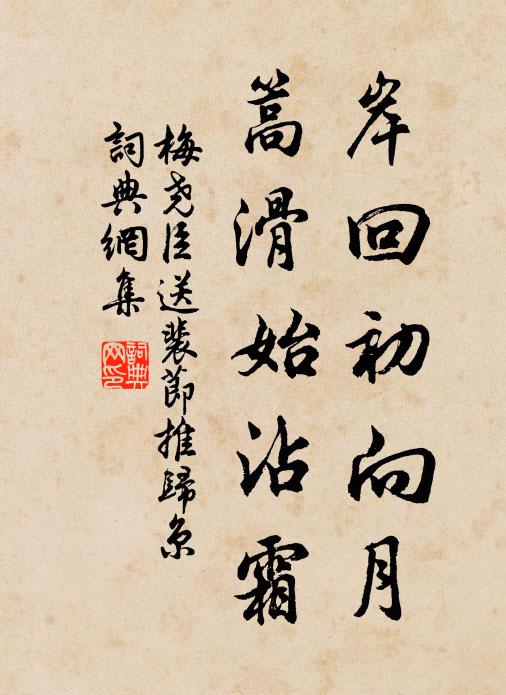 岸回初向月
篙滑始沾霜
梅尧臣送裴節推歸京
詞典網集
詞典网印